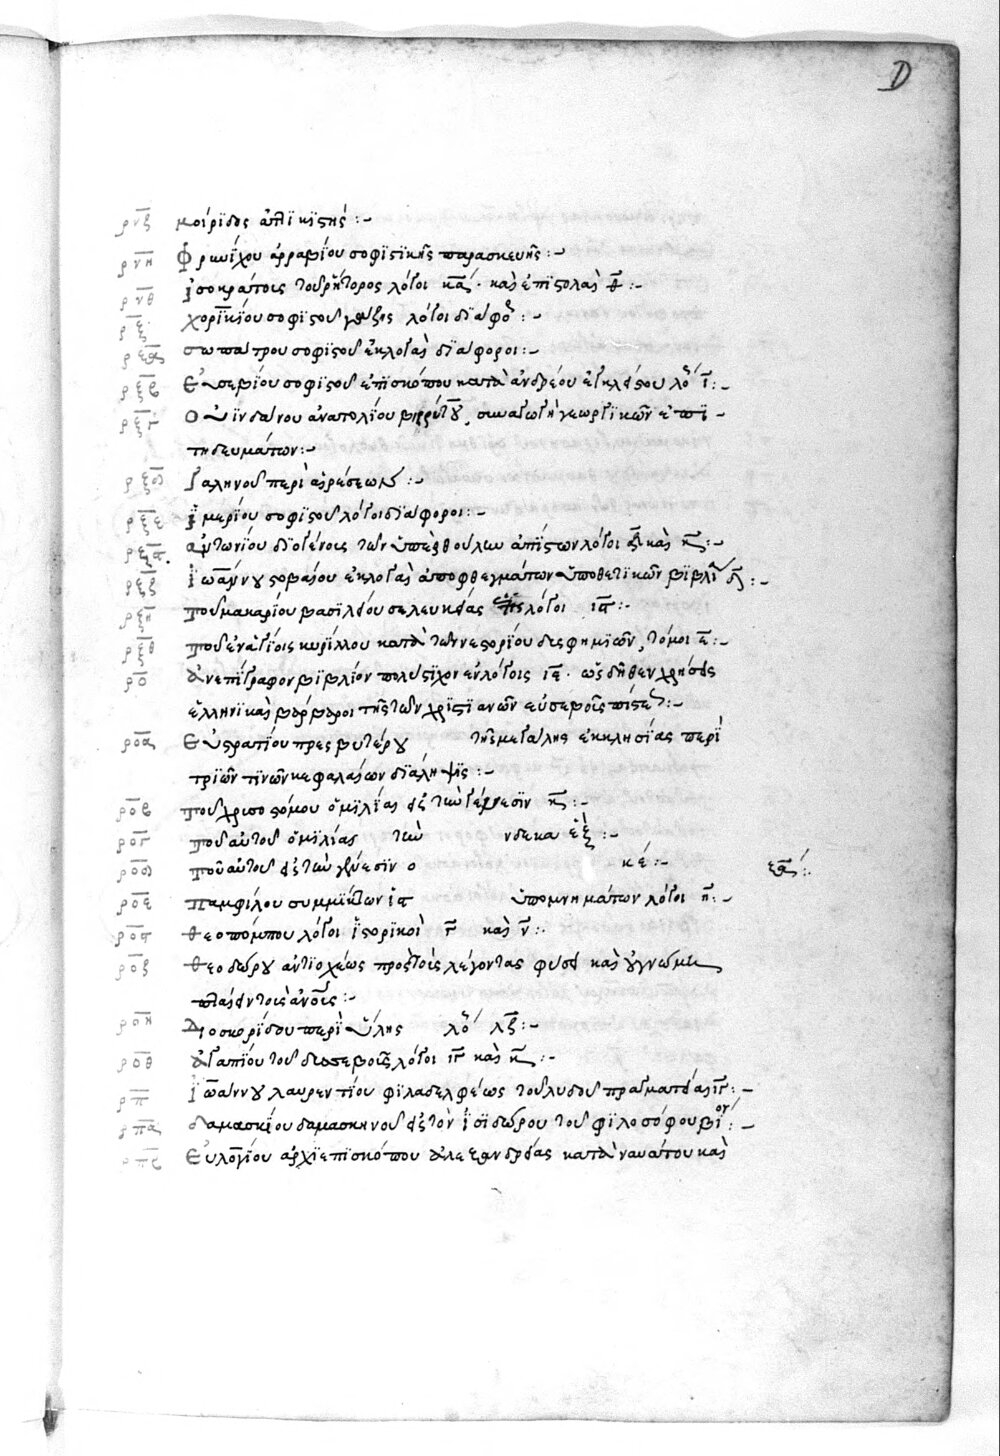 D
ρνζ μοίριδος ἀττικιστής :-
ρνη Φρυνίχου ἀρραβίου σοφιστικῆς παρασκευῆς :-
ρνθ ἰσοκράτους τοῦ ῥήτορος λόγοι κα καὶ ἐπιστολαὶ θ :-
ρξ χορικίου σοφιστοῦ γαζης λόγοι διάφο :-
ρξα σωπάτρου σοφιστοῦ ἐκλογαὶ διάφοροι :-
ρξβ Εὐσεβίου σοφιστοῦ ἐπισκόπου κατὰ ἀνδρέου λο ι :-
ρξγ Οὐϊνδανίου ἀνατολίου βηρύτου, συναγωγὴ γεωργικῶν ἐπι-
τηδευμάτων :-
ρξδ Γαληνοῦ περὶ αἱρέσεων :-
ρξε ἱμερίου σοφιστοῦ λόγοι διάφοροι :-
ρξς ἀντωνίου διογένους τῶν ὑπὲρ θούλην ἀπίστων λόγοι καὶ κδ :-
ρξζ Ἰωάννου στοβαίου ἐκλογαὶ ἀποφθεγμάτων ὑποθετικῶν βιβλι δ :-
ρξη τοῦ μακαρίου βασιλείου σελευκείας λόγοι ιε :-
ρξθ τοῦ ἐν ἁγίοις κυρίλλου κατὰ τῶν νεστορίου δυσφημιῶν, τόμοι ε :-
ρο Ἀνεπίγραφον βιβλίον πολύστιχον ἐν λόγοις ιε ὡς δῆθεν χρήσεις
ἑλληνικαὶ βάρβαροι τῆς τῶν χριστιανῶν εὐσεβοῦς πίστε :-
ροα Εὐστρατίου πρεσβυτέρου τῆς μεγάλης ἐκκλησίας περὶ
τριῶν τινῶν κεφαλαίων διάληψις :-
ροβ τοῦ χρυσοστόμου ὁμιλίας εἰς τὴν γένεσιν κ :-
ρογ τοῦ αὐτοῦ ὁμιλίας τὴν νδεκα ἑξ :-
ροδ τοῦ αὐτοῦ εἰς τὴν γένεσιν ο κέ :- ξα :.
ροε Παμφίλου συμμίκτων ὑπομνημάτων λόγοι η :-
ρος θεοπόμπου λόγοι ἱστορικοὶ γ καὶ ν :-
ροζ Θεοδώρου ἀντιοχέως πρὸς τοὺς λέγοντας φύσει καὶ οὐ γνώμη
πταίειν τοὺς ἀνους :-
ροη Διοσκορίδου περὶ ὕλης λο λζ :-
ροθ Ἀγαπίου τοῦ δυσσεβοῦς λόγοι γ καὶ κ :-
ρπ Ἰωάννου λαυρεντίου φιλαδελφέως τοῦ λυδοῦ πραγματεῖαι γ :-
ρπα δαμασκίου δαμασκηνοῦ εἰς τὸν ἰσιδώρου τοῦ φιλοσόφου βίον :-
ρπβ Εὐλογίου ἀρχιεπισκόπου ἀλεξανδρείας κατὰ ναυάτου καὶ